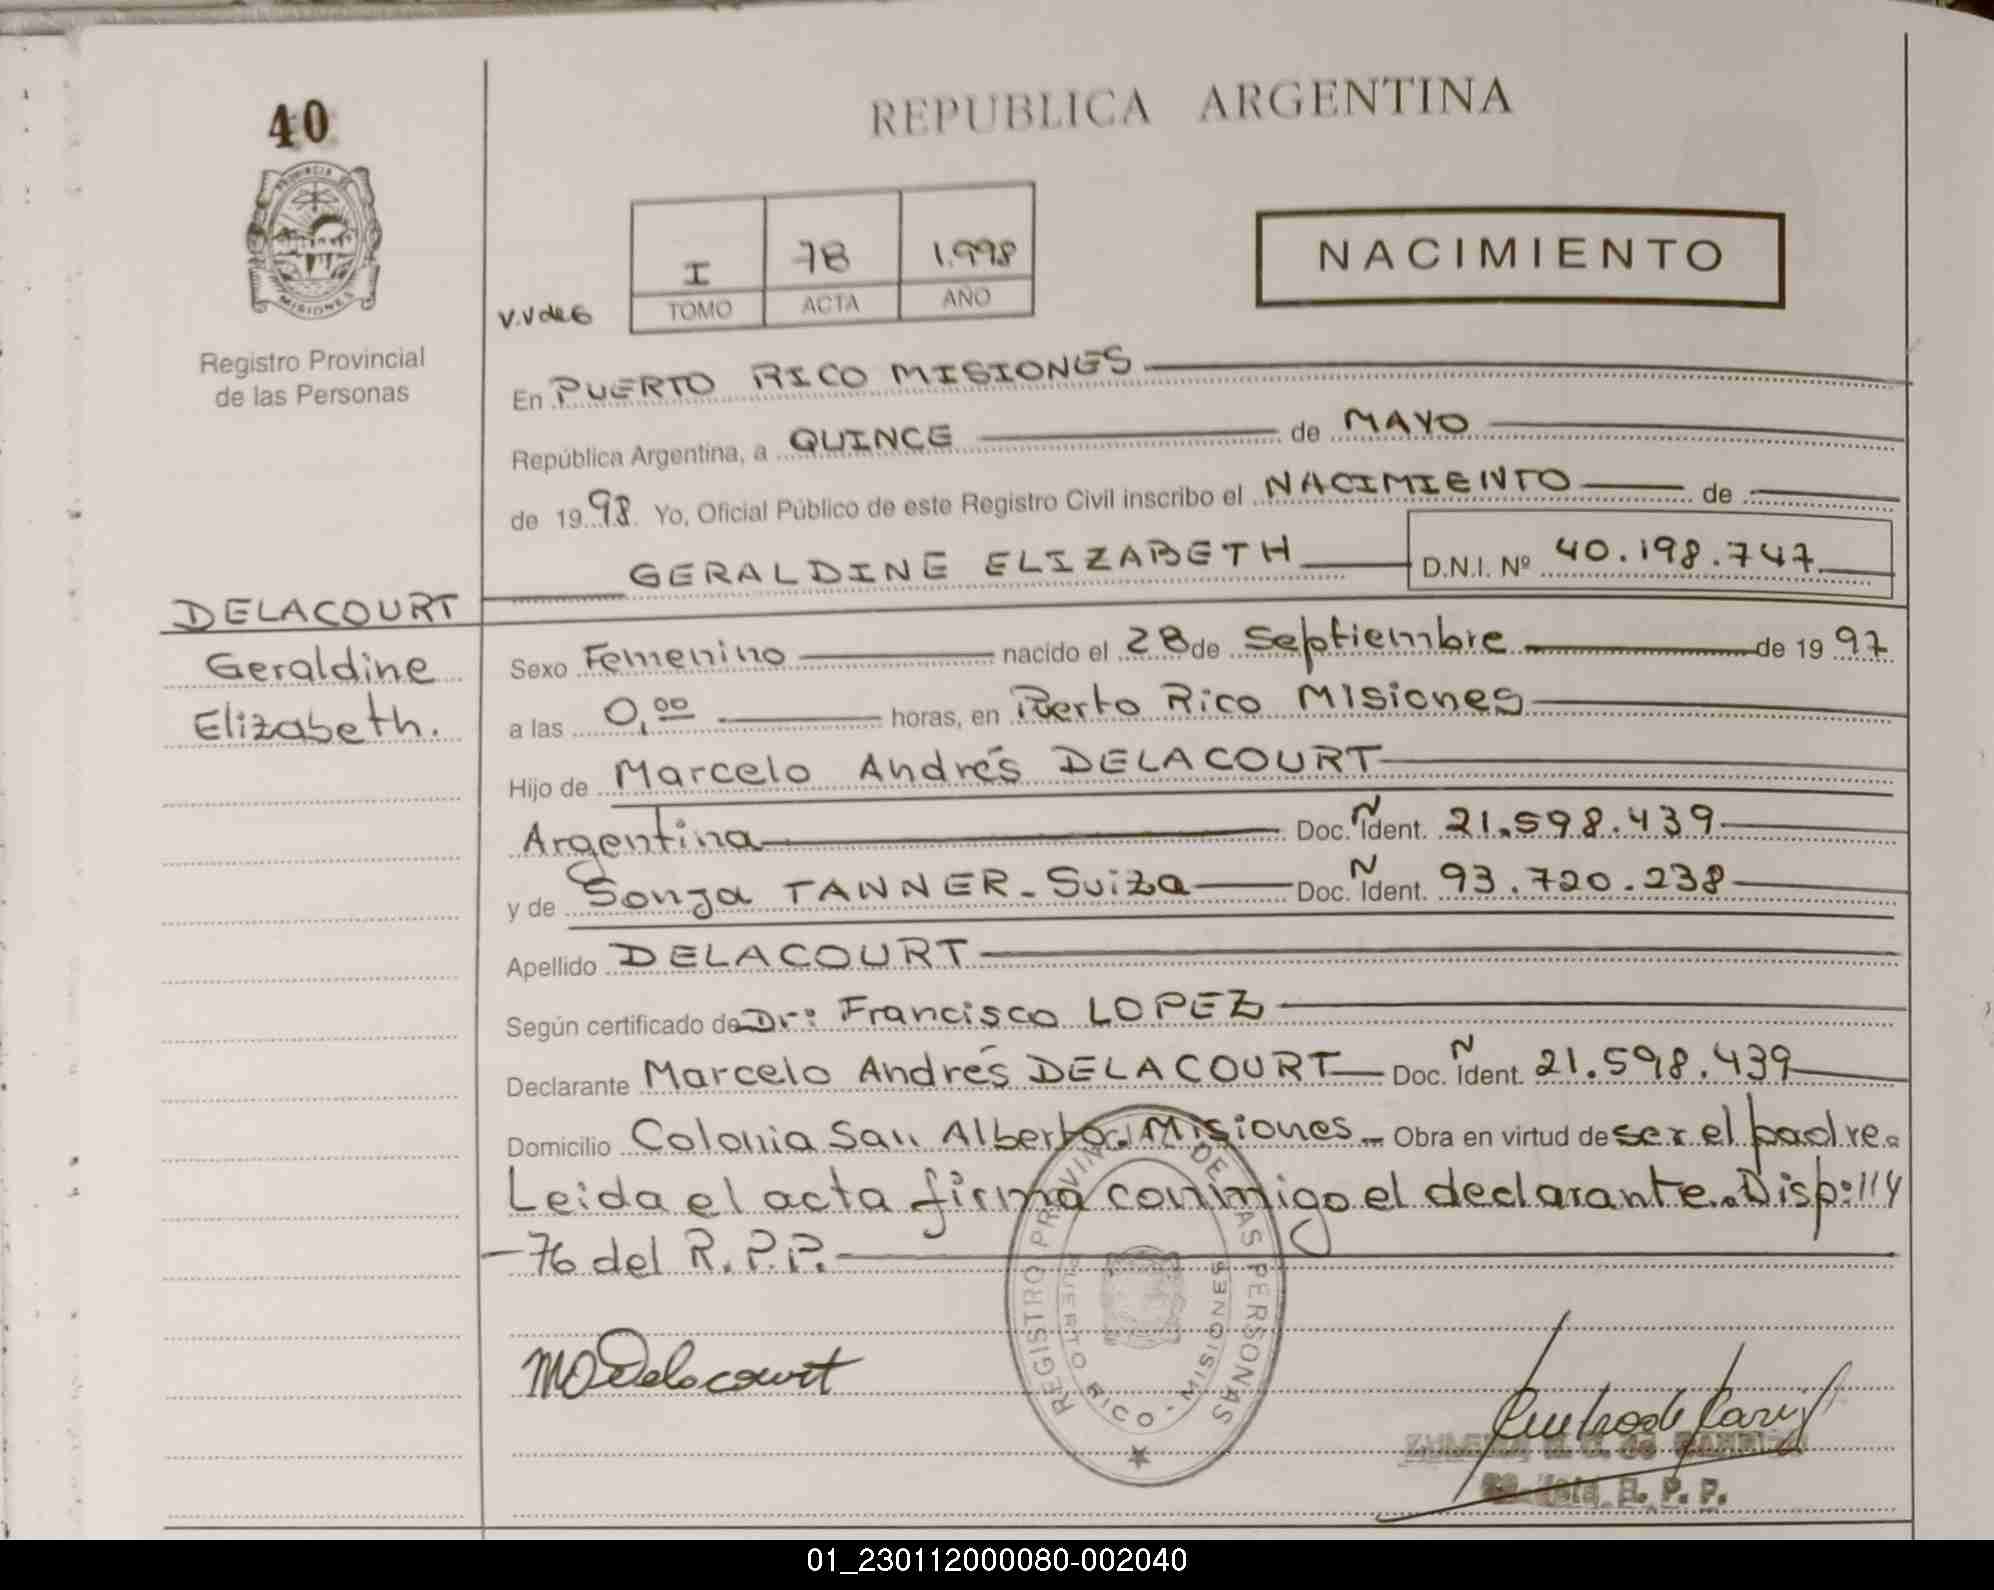 40
REPUBLICA ARGENTINA
PROVINCIA DE
MISIONES
I 78 1.998
TOMO ACTA AÑO
NACIMIENTO
V.V de G
Registro Provincial
de las Personas
En PUERTO RICO MISIONES
República Argentina, a QUINCE de MAYO
de 1998. Yo, Oficial Público de este Registro Civil inscribo el NACIMIENTO de
GERALDINE ELIZABETH D.N.I. Nº 40.198.747
DELACOURT
Geraldine
Elizabeth.
Sexo Femenino nacido el 28 de Septiembre de 1997
a las 0,00 horas, en Puerto Rico Misiones
Hijo de Marcelo Andrés DELACOURT
Argentina Doc. Ñ Ident. 21.598.439
y de Sonja TANNER - Suiza Doc. Ñ Ident. 93.720.238
Apellido DELACOURT
Según certificado de Dr: Francisco LOPEZ
Declarante Marcelo Andrés DELACOURT Doc. Ñ Ident. 21.598.439
Domicilio Colonia San Alberto. Misiones - Obra en virtud de ser el padre.
Leida el acta firma conmigo el declarante. Disp: 114
-76 del R.P.P.
REGISTRO PROVINCIAL DE LAS PERSONAS
PUERTO RICO - MISIONES
Delacourt
R. P. P.
01_230112000080-002040